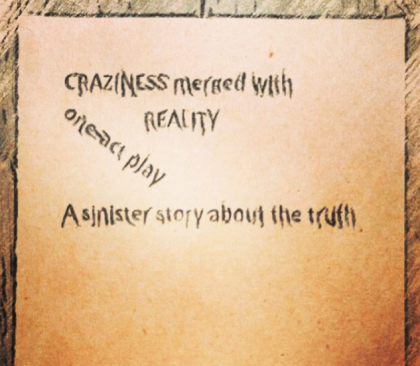 CRAZINESS merged with
REALITY
one-act play
A sinister story about the truth